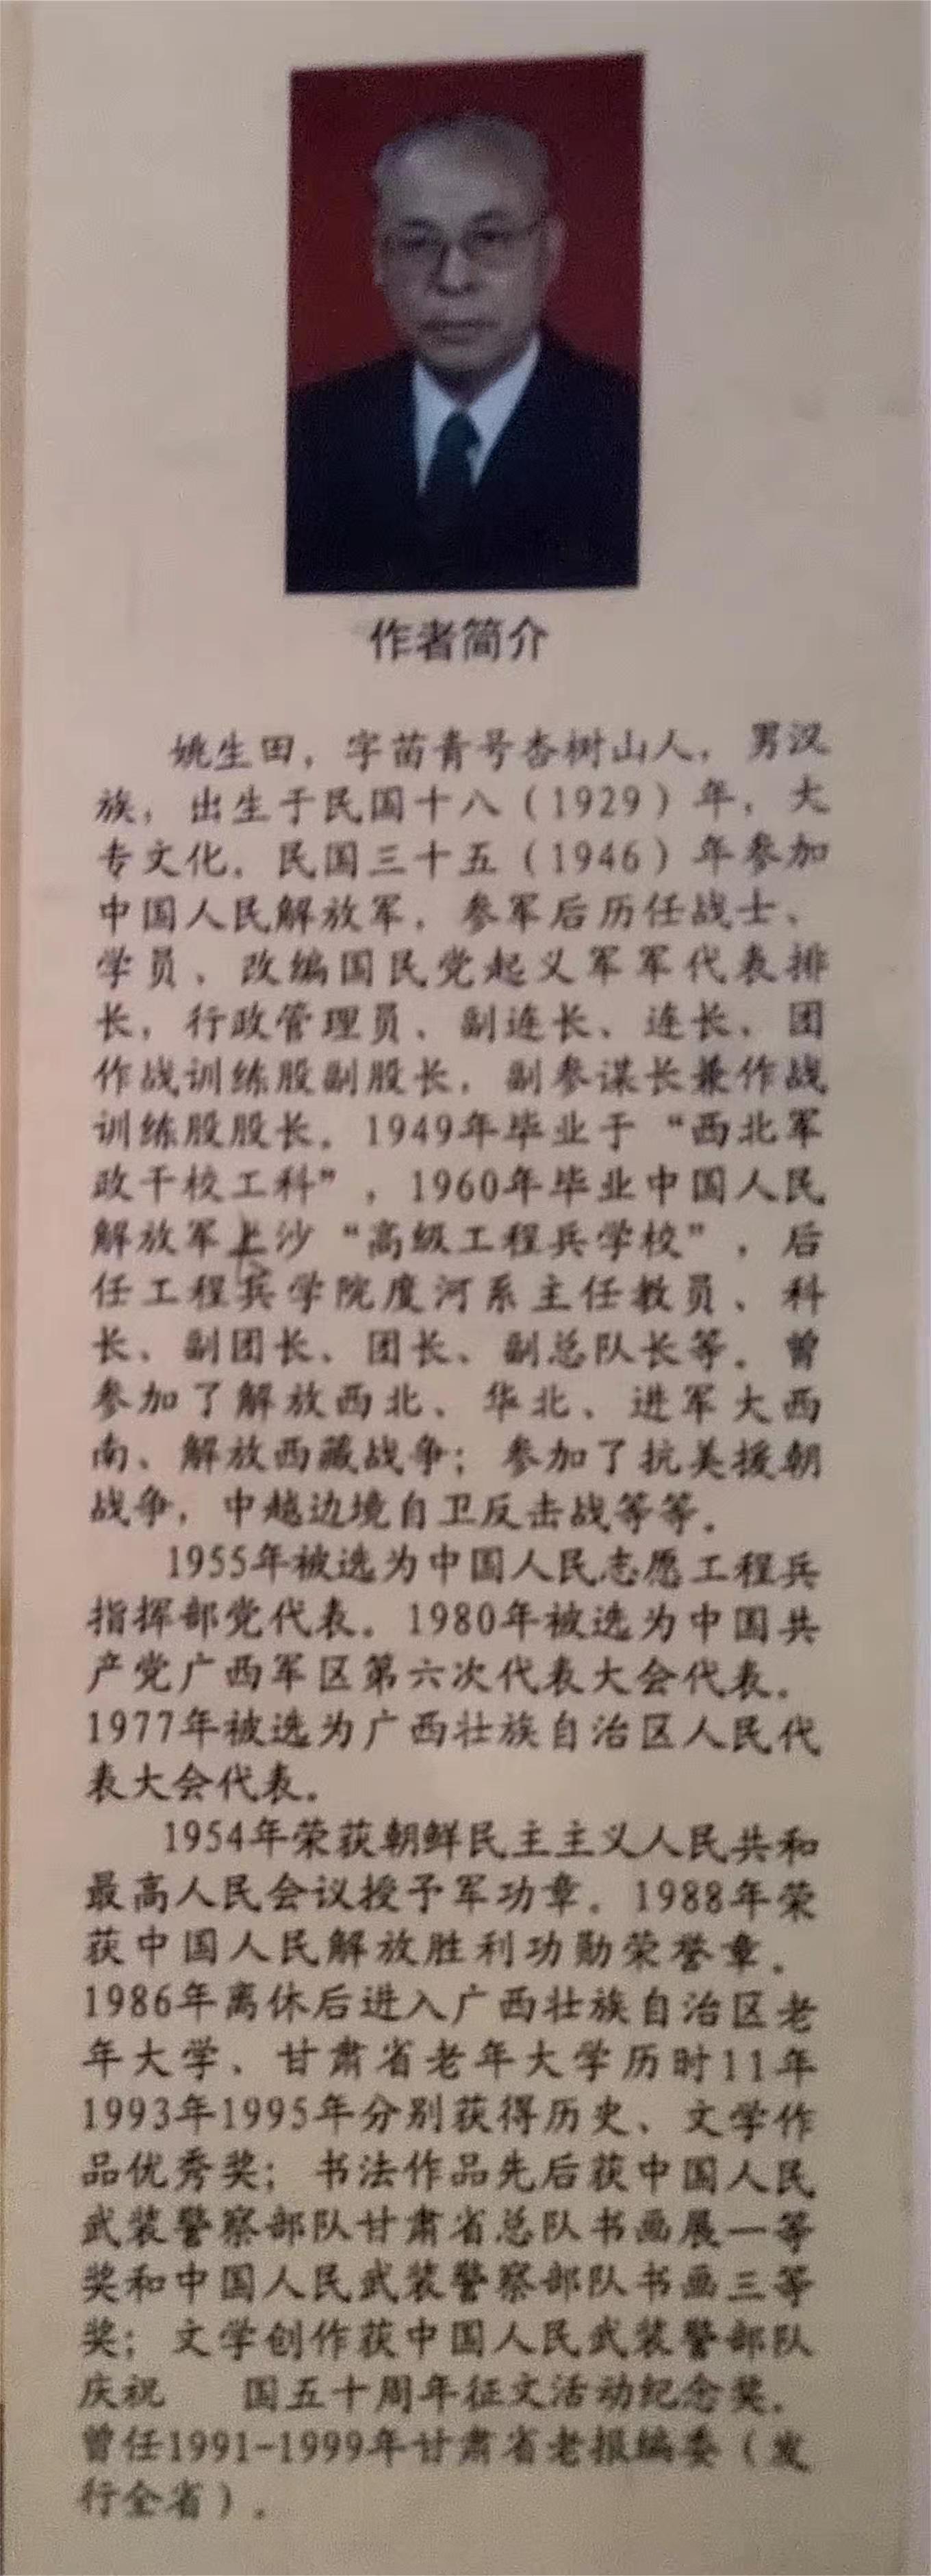 作者简介
姚生田，字苗青号杏树山人，男汉
族，出生于民国十八（1929）年，大
专文化。民国三十五（1946）年参加
中国人民解放军，参军后历任战士、
学员、改编国民党起义军军代表排
长，行政管理员、副连长、连长、团
作战训练股副股长，副参谋长兼作战
训练股股长。1949年毕业于“西北军
政干校工科”，1960年毕业中国人民
解放军 沙“高级工程兵学校”，后
任工程兵学院度河系主任教员、科
长、副团长、团长、副总队长等。曾
参加了解放西北、华北、进军大西
南、解放西藏战争；参加了抗美援朝
战争，中越边境自卫反击战等等。
1955年被选为中国人民志愿工程兵
指挥部党代表。1980年被选为中国共
产党广西军区第六次代表大会代表。
1977年被选为广西壮族自治区人民代
表大会代表。
1954年荣获朝鲜民主主义人民共和
最高人民会议授予军功章。1988年荣
获中国人民解放胜利功勋荣誉章。
1986年离休后进入广西壮族自治区老
年大学、甘肃省老年大学历时11年
1993年1995年分别获得历史、文学作
品优秀奖；书法作品先后获中国人民
武装警察部队甘肃省总队书画展一等
奖和中国人民武装警察部队书画三等
奖；文学创作获中国人民武装警部队
庆祝 国五十周年征文活动纪念奖。
曾任1991-1999年甘肃省老报编委（发
行全省）。